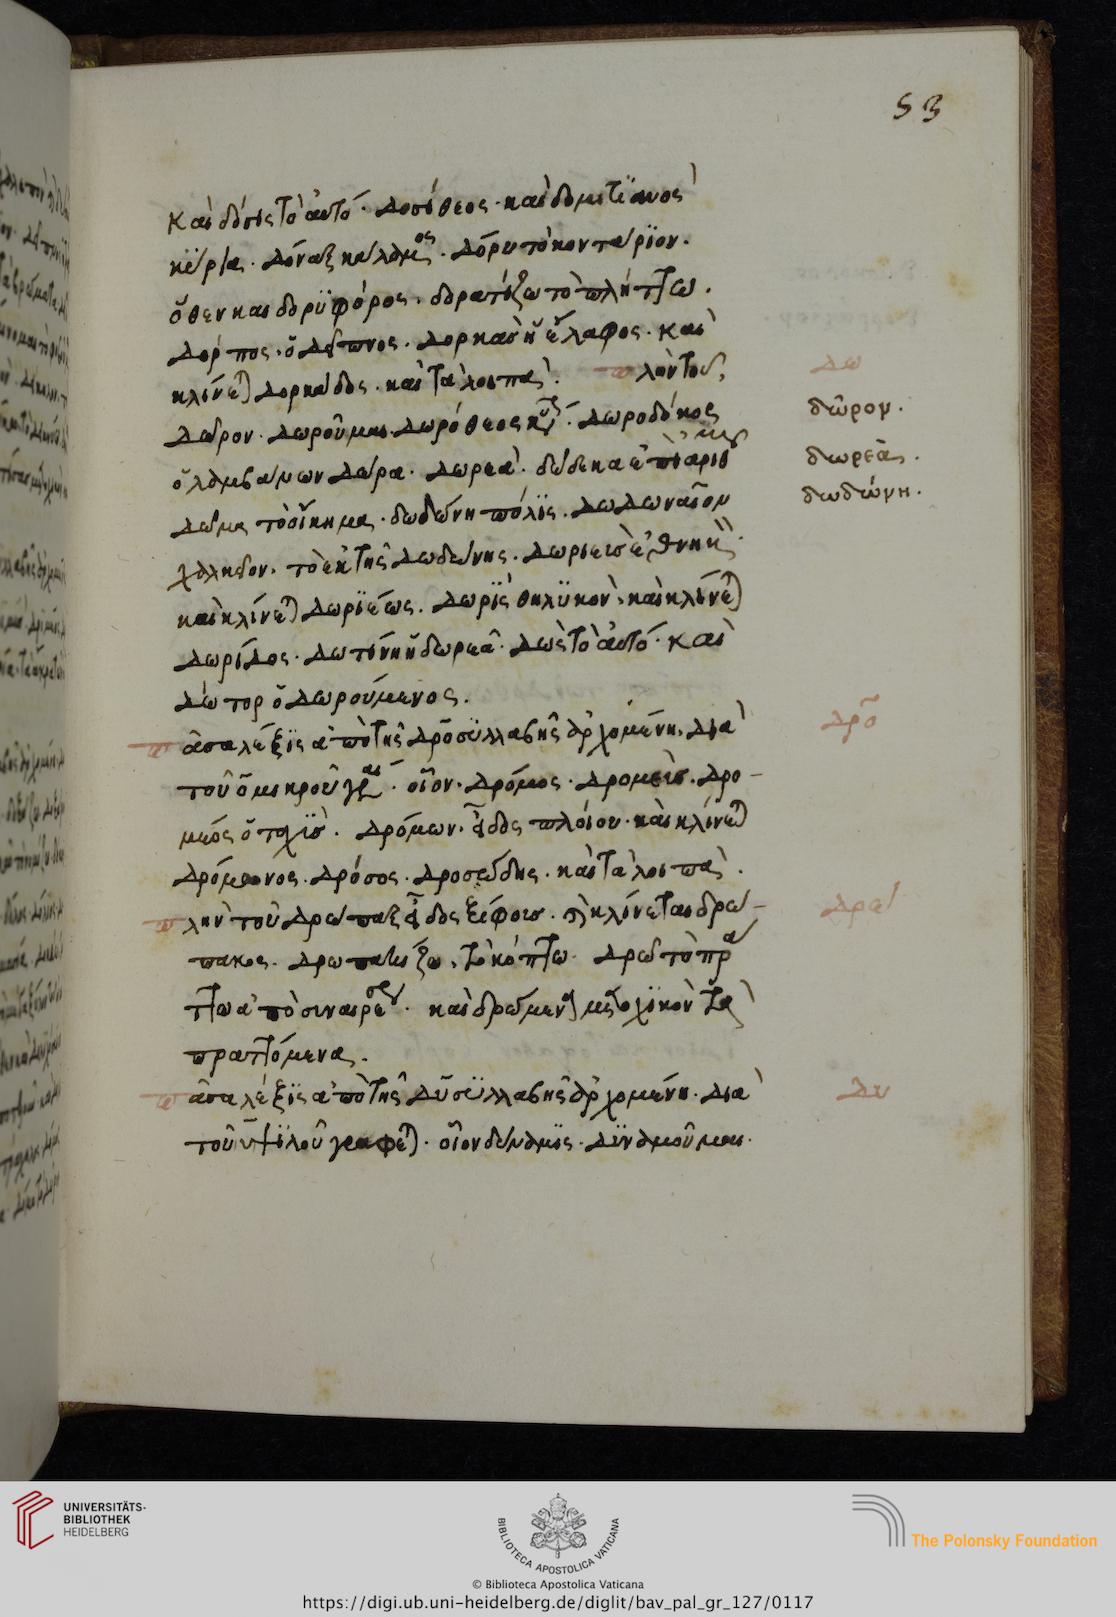 53
καὶ δόσις τὸ αὐτό. Δοσίθεος. καὶ δομετϊανος
κϋρία. Δόναξ κάλαμος. Δόρυ τὸ κοντάρϊον.
ὅθεν καὶ δορϋφόρος. δορατίζω τὸ πλήττω.
Δόρπος. ὁ δεῖπνος. Δορκὰς ἡ ἔλαφος. καὶ
κλίνε) Δορκάδος. καὶ τὰ λοιπά. πλὴν τοῦ
Δῶρον. Δωροῦμαι. Δωρόθεος Δωροδόκος
ὁ λαμβάνων Δῶρα. Δωρεά. δώδεκα ἐπὶ ἀριθμοῦ
Δῶμα τὸ οἴκημα. δωδώνη πόλϊς. Δωδωναῖον
χαλκεῖον. τὸ ἐκ τῆς Δωδώνης. Δωριεὺς ἐθνικὸν
καὶ κλίνε) Δωρϊέως. Δωρϊς θηλϋκὸν. καὶ κλίνε)
Δωρίδος. Δωτίνη ἡ δωρεὰ. Δὼς τὸ αὐτό. καὶ
Δώτορ ὁ Δωρούμενος.
πᾶσα λέξϊς ἀπὸ τῆς Δρο σϋλλαβῆς ἀρχομένη. Διὰ
τοῦ ο μικροῦ οἷον. Δρόμος. Δρομεὺς. Δρο-
μέος ὁ ταχϊς. Δρόμων. εἶδος πλοίου. καὶ κλίνε)
Δρόμωνος. Δρόσος. Δροσώδης. καὶ τὰ λοιπά.
πλὴν τοῦ Δρώπαξ εἶδος ξίφους. κλίνεται δρώ-
πακος. Δρωπακίζω. τὸ κόπτω. Δρῶ τὸ πρατ
τω ἀπὸ συναιρέσεως. καὶ δρώμενα μετοχϊκὸν τὰ
πραττόμενα.
πᾶσα λέξϊς ἀπὸ τῆς Δυ σϋλλαβῆς ἀρχομένη. Διὰ
τοῦ υ ψϊλοῦ γράφε). οἷον δύναμϊς. Δϋναμοῦμαι.
Δω
δῶρον.
δωρεὰ.
δωδώνη.
Δρο
Δρω
Δυ
UNIVERSITÄTS-
BIBLIOTHEK
HEIDELBERG
BIBLIOTECA APOSTOLICA VATICANA
The Polonsky Foundation
© Biblioteca Apostolica Vaticana
https://digi.ub.uni-heidelberg.de/diglit/bav_pal_gr_127/0117